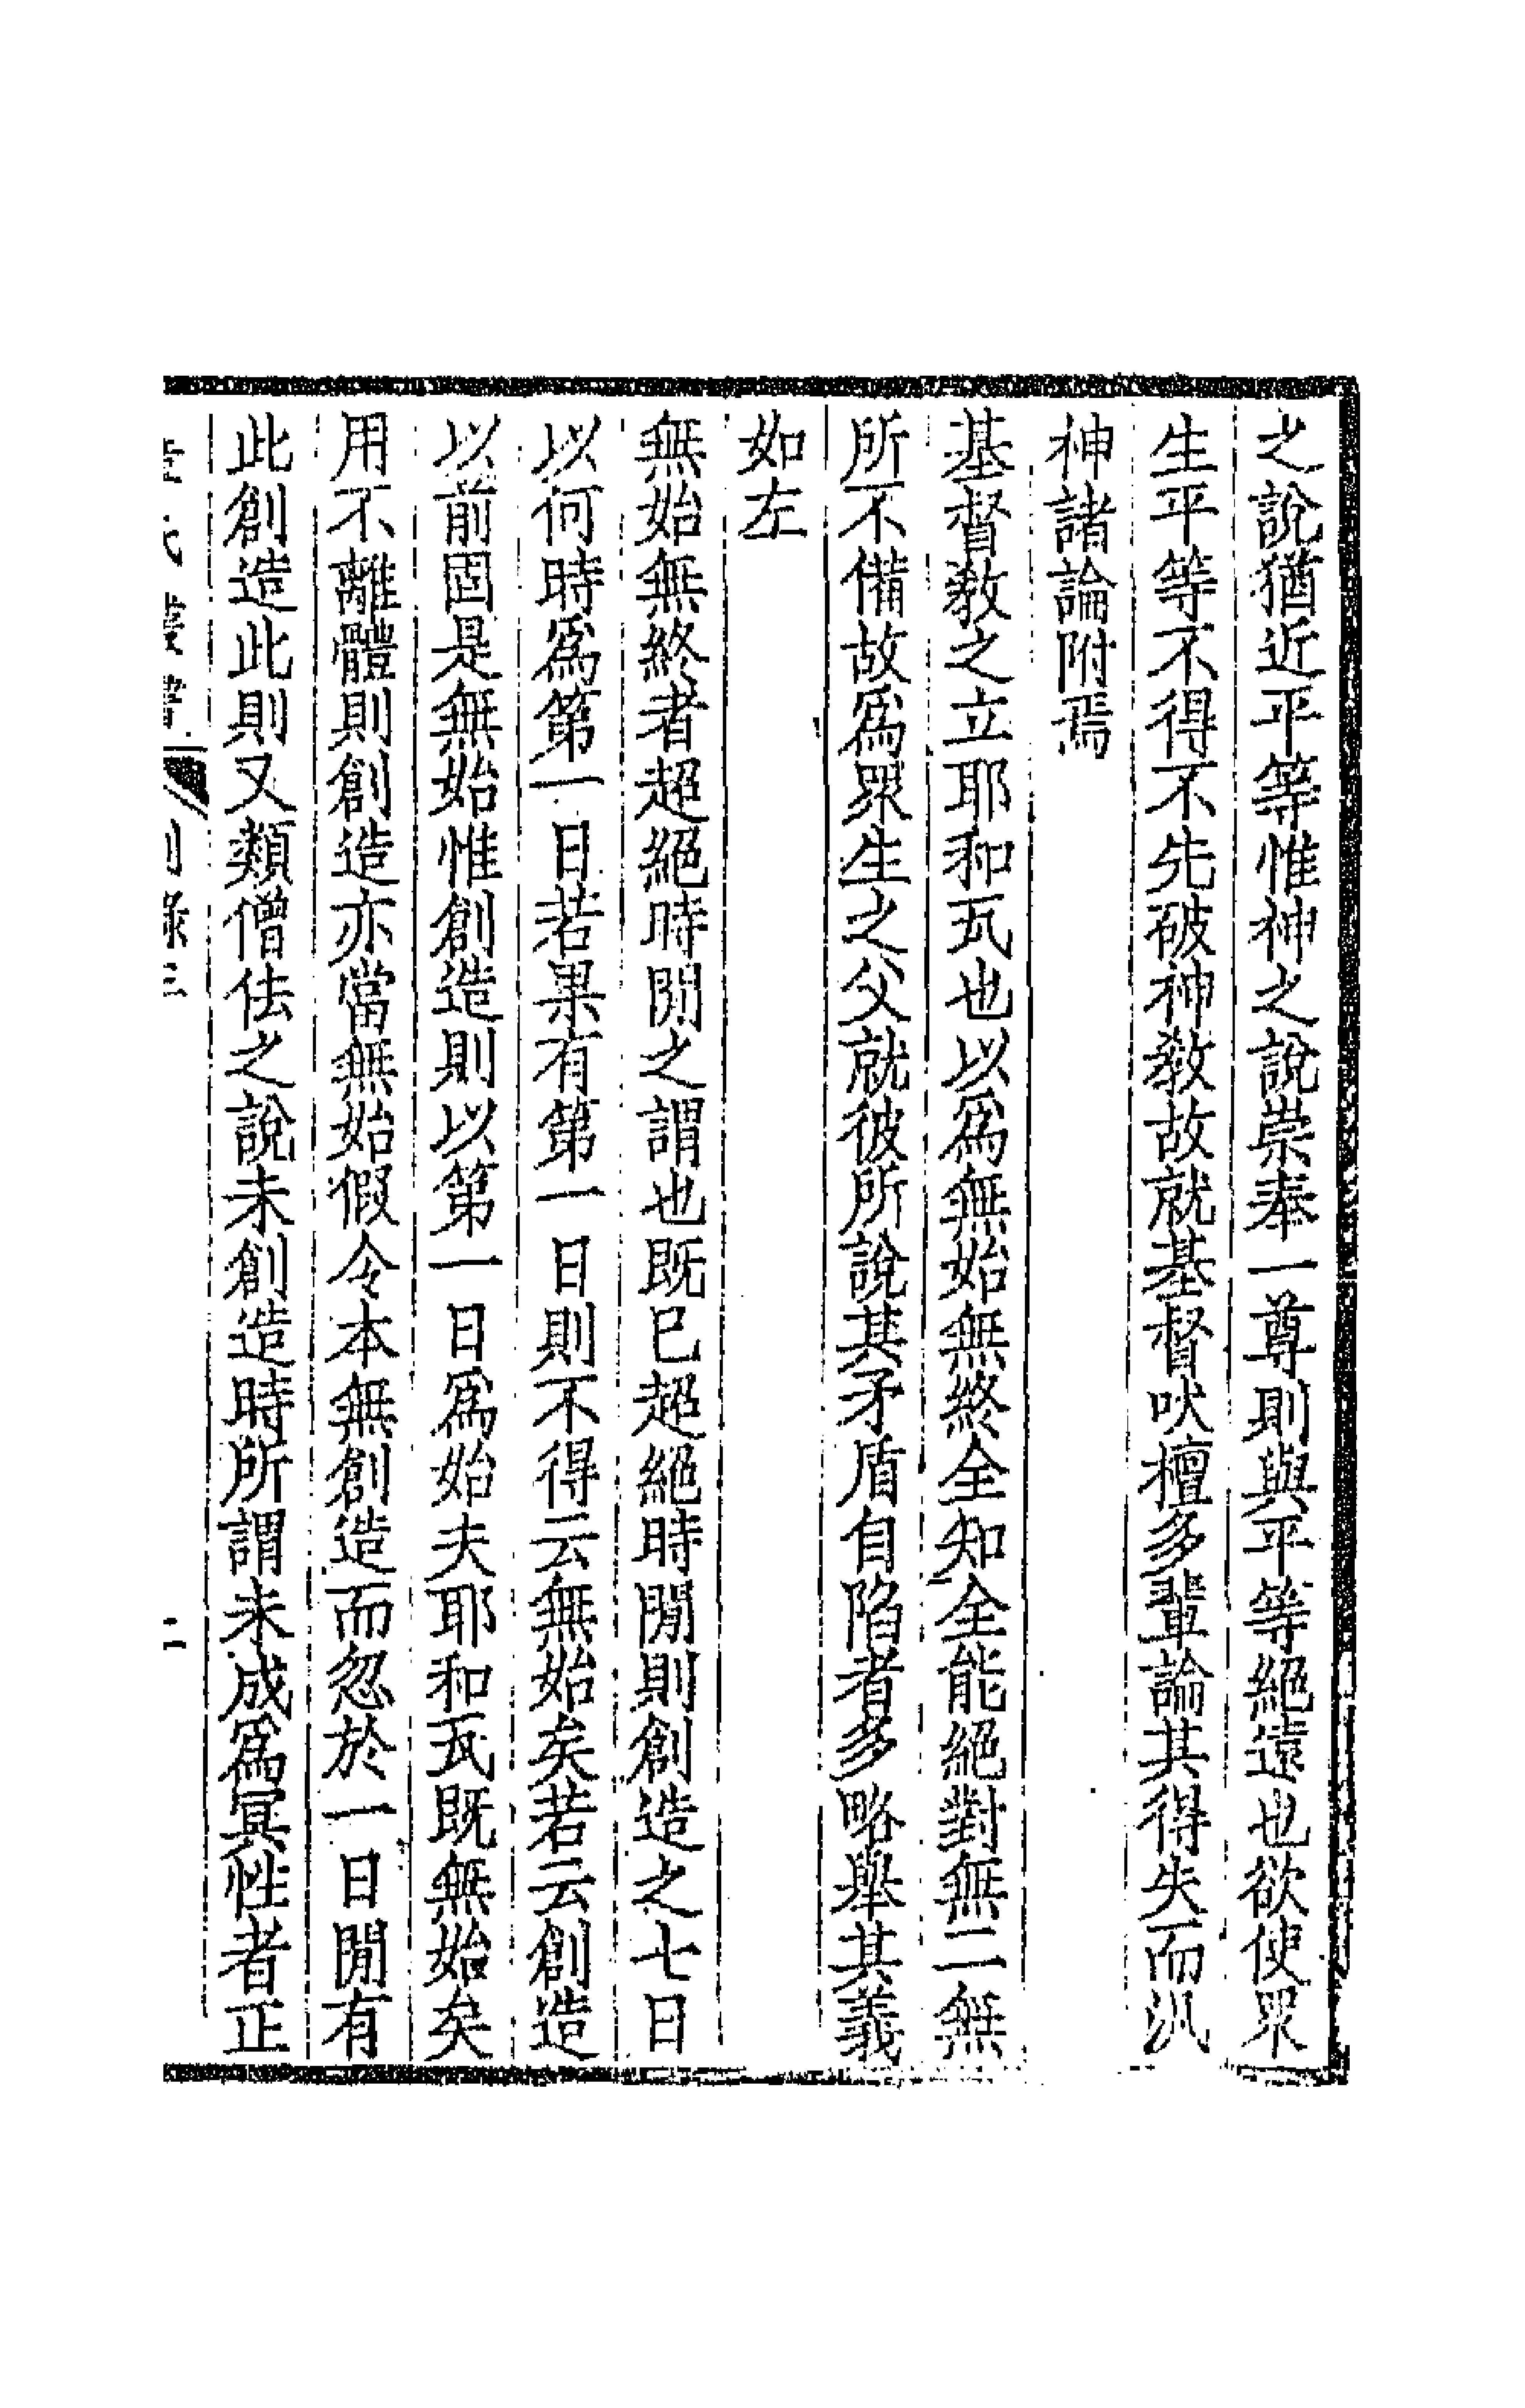 之說猶近平等惟神之說崇奉一尊則與平等絕遠也欲使眾
生平等不得不先破神教故就基督吠檀多輩論其得失而汎
神諸論附焉
基督教之立耶和瓦也以爲無始無終全知全能絕對無二無
所不備故爲眾生之父就彼所說其矛盾自陷者多略舉其義
如左
無始無終者超絕時閒之謂也既已超絕時閒則創造之七日
以何時爲第一日若果有第一日則不得云無始矣若云創造
以前固是無始惟創造則以第一日爲始夫耶和瓦既無始矣
用不離體則創造亦當無始假令本無創造而忽於一日閒有
此創造此則又類僧佉之說未創造時所謂未成爲冥性者正
章氏叢書 別錄三 二